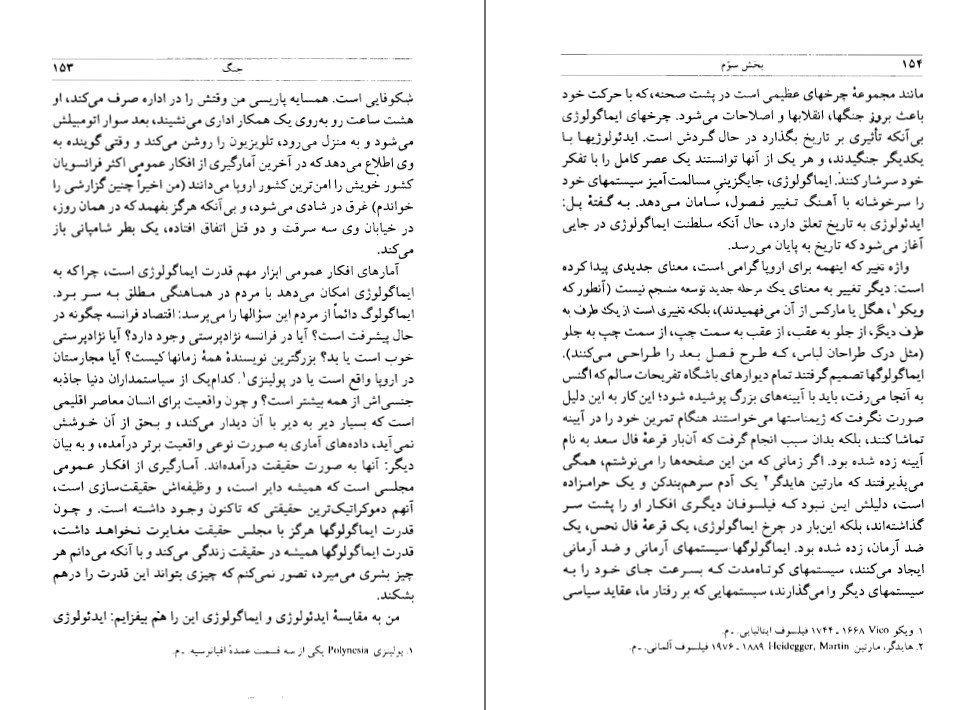 ۱۵۳
جنگ
شکوفایی است. همسایه پاریسی من وقتش را در اداره صرف می‌کند، او
هشت ساعت رو به‌روی یک همکار اداری می‌نشیند، بعد سوار اتومبیلش
می‌شود و به منزل می‌رود، تلویزیون را روشن می‌کند و وقتی گوینده به
وی اطلاع می‌دهد که در آخرین آمارگیری از افکار عمومی اکثر فرانسویان
کشور خویش را امن‌ترین کشور اروپا می‌دانند (من اخیراً چنین گزارشی را
خواندم) غرق در شادی می‌شود، و بی‌آنکه هرگز بفهمد که در همان روز،
در خیابان وی سه سرقت و دو قتل اتفاق افتاده، یک بطر شامپانی باز
می‌کند.
آمارهای افکار عمومی ابزار مهم قدرت ایماگولوژی است، چرا که به
ایماگولوژی امکان می‌دهد با مردم در هماهنگی مطلق به سر برد.
ایماگولوگ دائماً از مردم این سؤالها را می‌پرسد: اقتصاد فرانسه چگونه در
حال پیشرفت است؟ آیا در فرانسه نژادپرستی وجود دارد؟ آیا نژادپرستی
خوب است یا بد؟ بزرگترین نویسندهٔ همهٔ زمانها کیست؟ آیا مجارستان
در اروپا واقع است یا در پولینزی۱. کدام‌یک از سیاستمداران دنیا جاذبه
جنسی‌اش از همه بیشتر است؟ و چون واقعیت برای انسان معاصر اقلیمی
است که بسیار دیر به دیر با آن دیدار می‌کند، و بحق از آن خوشش
نمی‌آید، داده‌های آماری به صورت نوعی واقعیت برتر درآمده، و به بیان
دیگر: آنها به صورت حقیقت درآمده‌اند. آمارگیری از افکار عمومی
مجلسی است که همیشه دایر است، و وظیفه‌اش حقیقت‌سازی است،
آنهم دموکراتیک‌ترین حقیقتی که تاکنون وجود داشته است. و چون
قدرت ایماگولوگها هرگز با مجلس حقیقت مغایرت نخواهد داشت،
قدرت ایماگولوگها همیشه در حقیقت زندگی می‌کند و با آنکه می‌دانم هر
چیز بشری می‌میرد، تصور نمی‌کنم که چیزی بتواند این قدرت را درهم
بشکند.
من به مقایسهٔ ایدئولوژی و ایماگولوژی این را هم بیفزایم: ایدئولوژی
۱. پولینزی Polynesia یکی از سه قسمت عمدهٔ اقیانوسیه. ـ م.
۱۵۴
بخش سوّم
مانند مجموعهٔ چرخهای عظیمی است در پشت صحنه، که با حرکت خود
باعث بروز جنگها، انقلابها و اصلاحات می‌شود. چرخهای ایماگولوژی
بی‌آنکه تأثیری بر تاریخ بگذارد در حال گردش است. ایدئولوژیها با
یکدیگر جنگیدند، و هر یک از آنها توانستند یک عصر کامل را با تفکر
خود سرشار کنند. ایماگولوژی، جایگزینیِ مسالمت‌آمیز سیستمهای خود
را سرخوشانه با آهنگ تغییر فصول، سامان می‌دهد. به گفتهٔ پل:
ایدئولوژی به تاریخ تعلق دارد، حال آنکه سلطنت ایماگولوژی در جایی
آغاز می‌شود که تاریخ به پایان می‌رسد.
واژه تغیر که اینهمه برای اروپا گرامی است، معنای جدیدی پیدا کرده
است: دیگر تغییر به معنای یک مرحله جدید توسعه منسجم نیست (آنطور که
ویکو۱، هگل یا مارکس از آن می‌فهمیدند)، بلکه تغییری است از یک طرف به
طرف دیگر، از جلو به عقب، از عقب به سمت چپ، از سمت چپ به جلو
(مثل درک طراحان لباس، که طرح فصل بعد را طراحی می‌کنند).
ایماگولوگها تصمیم گرفتند تمام دیوارهای باشگاه تفریحات سالم که اگنس
به آنجا می‌رفت، باید با آیینه‌های بزرگ پوشیده شود؛ این کار به این دلیل
صورت نگرفت که ژیمناستها می‌خواستند هنگام تمرین خود را در آیینه
تماشا کنند، بلکه بدان سبب انجام گرفت که آن‌بار قرعهٔ فال سعد به نام
آیینه زده شده بود. اگر زمانی که من این صفحه‌ها را می‌نوشتم، همگی
می‌پذیرفتند که مارتین هایدگر۲ یک آدم سرهم‌بندکن و یک حرامزاده
است، دلیلش این نبود که فیلسوفان دیگری افکار او را پشت سر
گذاشته‌اند، بلکه این‌بار در چرخ ایماگولوژی، یک قرعهٔ فال نحس، یک
ضد آرمان، زده شده بود. ایماگولوگها سیستمهای آرمانی و ضد آرمانی
ایجاد می‌کنند، سیستمهای کوتاه‌مدت که بسرعت جای خود را به
سیستمهای دیگر وا می‌گذارند، سیستمهایی که بر رفتار ما، عقاید سیاسی
۱. ویکو Vico ۱۶۶۸ ـ ۱۷۴۴ فیلسوف ایتالیایی. ـ م.
۲. هایدگر، مارتین Heidegger, Martin ۱۸۸۹ ـ ۱۹۷۶ فیلسوف آلمانی. ـ م.